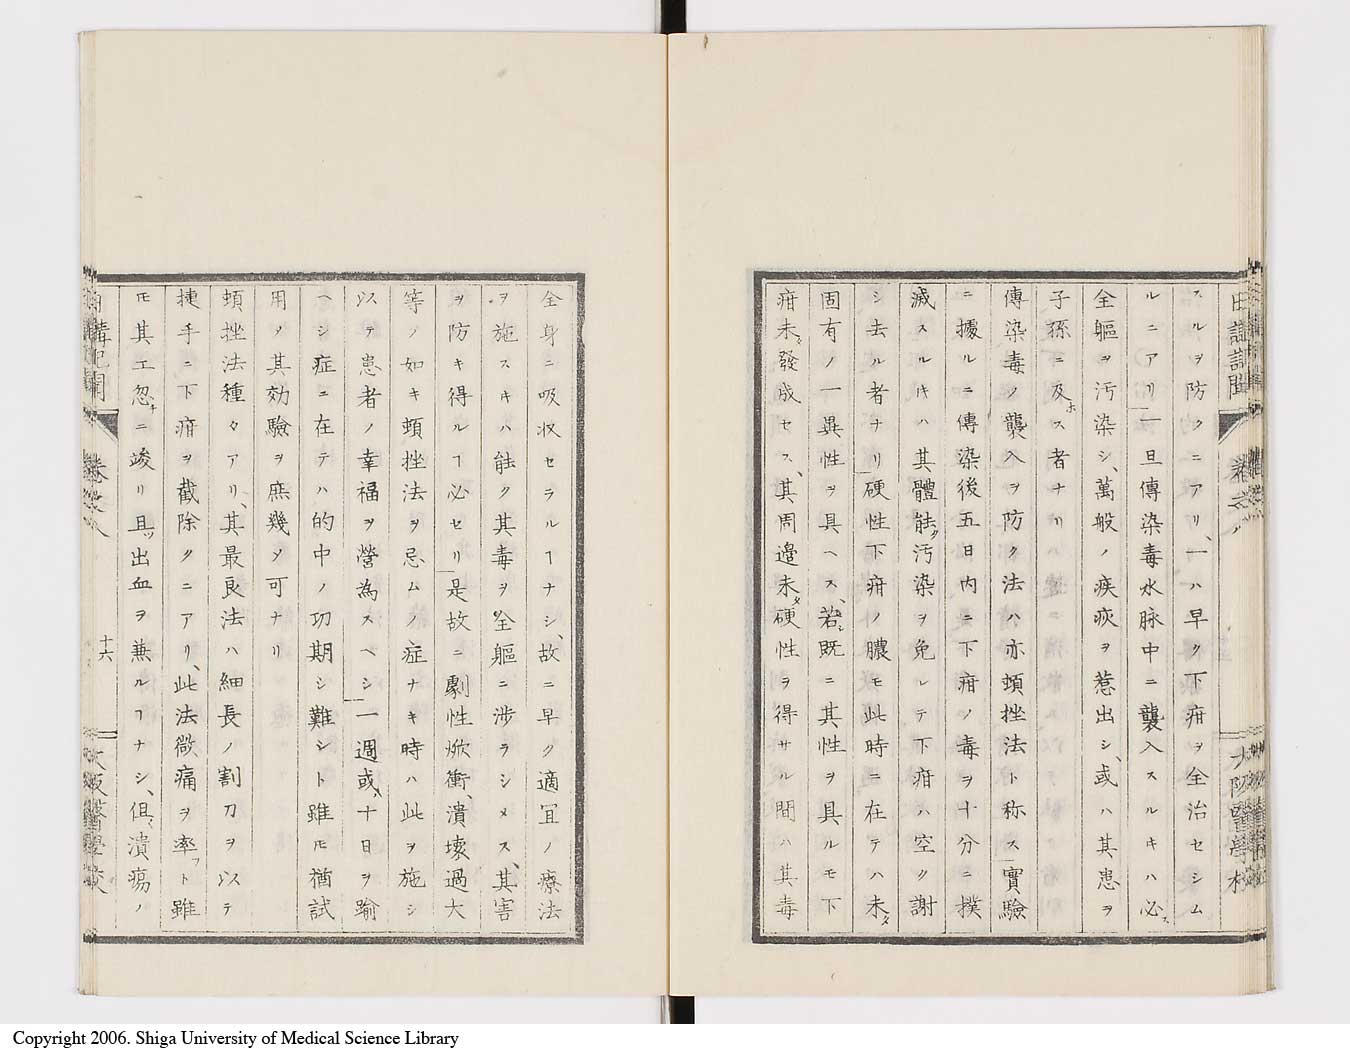 スルヲ防クニアリ、一ハ早ク下疳ヲ全治セシム
ルニアリ一旦傳染毒水脉中ニ襲入スルキハ必ス
全軀ヲ汚染シ、萬般ノ疾疢ヲ惹出シ、或ハ其患ヲ
子孫ニ及ホス者ナリ
傳染毒ノ襲入ヲ防ク法ハ亦頓挫法ト称ス實驗
ニ據ルニ傳染後五日内ニ下疳ノ毒ヲ十分ニ撲
滅スルキハ其體能ク汚染ヲ免レテ下疳ハ空ク謝
シ去ル者ナリ硬性下疳ノ膿モ此時ニ在テハ未タ
固有ノ一異性ヲ具ヘス、若シ既ニ其性ヲ具ルモ下
疳未タ發成セス、其周邉未タ硬性ヲ得サル間ハ其毒
大阪醫學校
全身ニ吸收セラルヿナシ、故ニ早ク適冝ノ療法
ヲ施スキハ能ク其毒ヲ全軀ニ涉ラシメス、其害
ヲ防キ得ルヿ必セリ是故ニ劇性焮衝、潰壊過大
等ノ如キ頓挫法ヲ忌ムノ症ナキ時ハ此ヲ施シ
以テ患者ノ幸福ヲ營為スヘシ一週或ハ十日ヲ踰
ヘシ症ニ在テハ的中ノ功期シ難シト雖モ猶試
用ノ其効驗ヲ庶幾ソ可ナリ
頓挫法種々アリ、其最良法ハ細長ノ割刀ヲ以テ
捷手ニ下疳ヲ截除クニアリ、此法微痛ヲ率フト雖
モ其工忽チニ竣リ且ツ出血ヲ兼ルヿナシ、但シ潰瘍ノ
十六
大阪醫學校